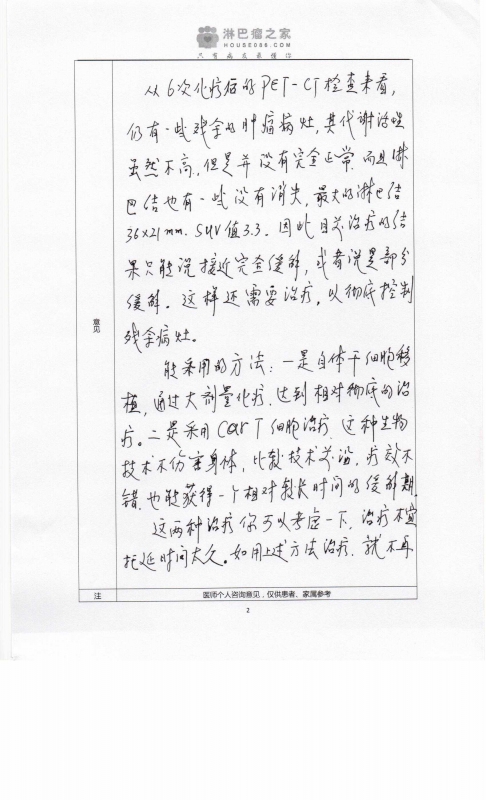 淋巴瘤之家
HOUSE086.COM
只有病友最懂你
从6次化疗后的PET-CT检查来看，
仍有一些残余的肿瘤病灶，其代谢活性
虽然不高，但是并没有完全正常，而且淋
巴结也有一些没有消失，最大的淋巴结
36x21mm. SUV值3.3。因此目前治疗的结
果只能说接近完全缓解，或者说是部分
缓解。这样还需要治疗，以彻底控制
残余病灶。
意见
能采用的方法：一是自体干细胞移
植，通过大剂量化疗，达到相对彻底的治
疗。二是采用CarT细胞治疗，这种生物
技术不伤害身体，比较技术前沿，疗效不
错，也能获得一个相对较长时间的缓解期
这两种治疗你可以考虑一下，治疗不宜
拖延时间太久。如用上述方法治疗，就不再
注
医师个人咨询意见，仅供患者、家属参考
2